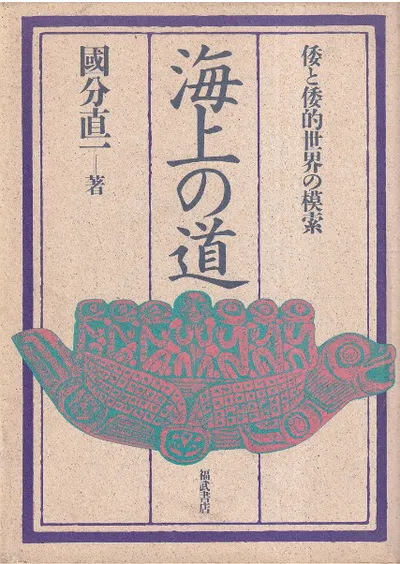 倭と倭的世界の模索
海上の道
國分直一—著
福武書店